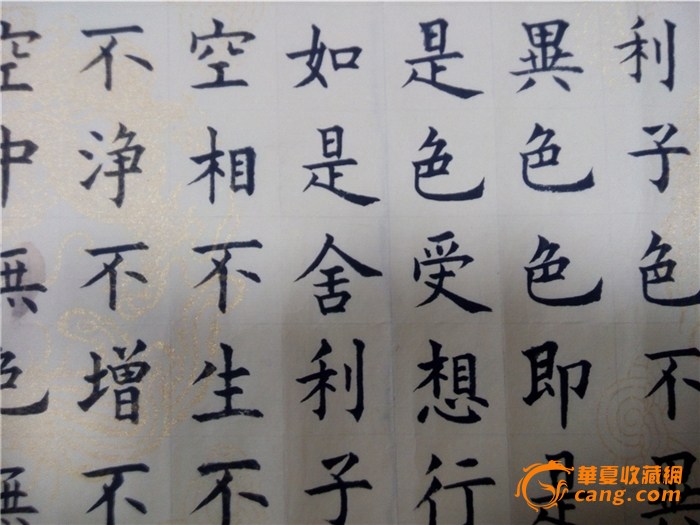 利子色不異
異色色即是
是色受想行
如是舍利子
空相不生不
不浄不增不
空中無色無
華夏收藏網
cang.com